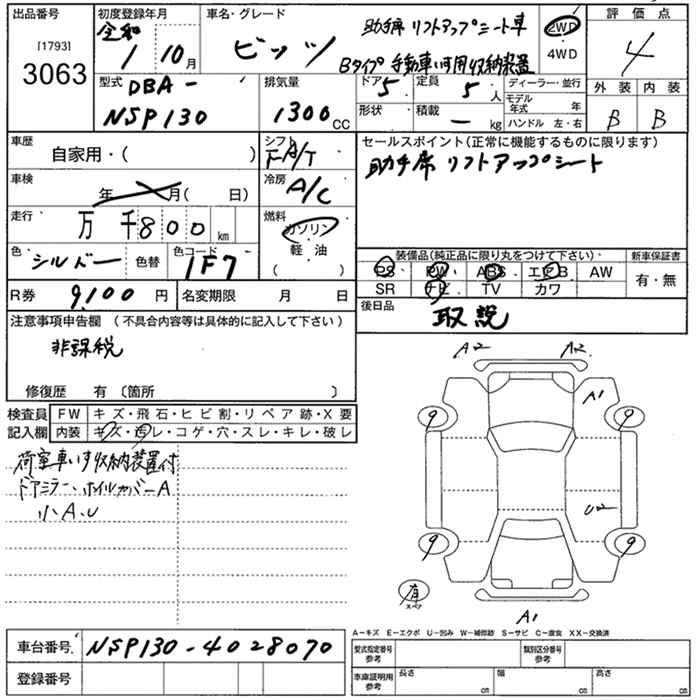 出品番号
[1793]
3063
初度登録年月
令和
1 10月
車名・グレード
助手席 リフトアップシート車
ビッツ
Bタイプ 手動車いす用収納装置
2WD
4WD
評価点
4
外装 内装
B B
型式
DBA-
NSP130
排気量
1300 CC
ドア 5
定員 5 人
形状
積載 - kg
ディーラー・並行
モデル年式 年
ハンドル 左・右
車歴
自家用・( )
シフト
FA/T
車検
年 月( 日)
冷房
A/C
走行
万 千800 km
燃料
ガソリン
軽・油
( )
色
シルバー
色替
色コード
1F7
R券 9,100 円
名変期限 月 日
セールスポイント(正常に機能するものに限ります)
助手席 リフトアップシート
装備品(純正品に限り丸をつけて下さい)
新車保証書
PS PW ABS エアB AW
SR ナビ TV カワ
有・無
後日品
取説
注意事項申告欄 (不具合内容等は具体的に記入して下さい)
非課税
修復歴 有 〔箇所 〕
検査員記入欄
FW キズ・飛石・ヒビ割・リペア跡・X要
内装 キズ・汚レ・コゲ・穴・スレ・キレ・破レ
荷室車いす収納装置付
ドアミラー、ホイルカバーA
小A、U
A2 A2
A1
9 9
U2
9 9
有
スペア
A1
A-キズ E-エクボ U-凹み W-補修跡 S-サビ C-腐食 XX-交換済
車台番号 NSP130-4028070
登録番号
型式指定番号 参考
類別区分番号 参考
車庫証明用 参考
長さ cm
幅 cm
高さ cm